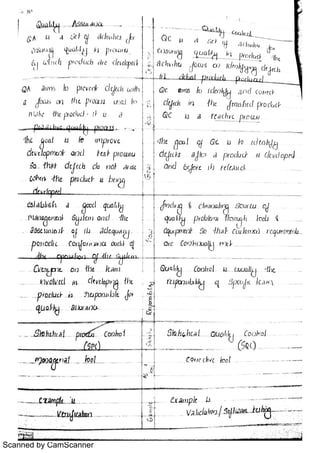 Quality Assurance
QA is a set of activities for
ensuring quality in process
by which products are developed
QA aims to prevent defects with
a focus on the process used to
make the product. It is a
process
The goal is to improve
development and test process
so that defects do not arise
when the product is being
developed
establish a good quality
management system and the
assessment of its adequacy.
periodic conformance audit of
the operation of the system
Everyone on the team
involved in developing the
product is responsible for
quality assurance
Statistical process Control
(SPC)
managerial tool
example is
Verification
Quality Control
QC is a set of activities for
ensuring quality in products. The
activities focus on identifying defects
in actual products produced
QC aims to identify and correct
defects in the finished product
QC is a reactive process
The goal of QC is to identify
defects after a product is developed
and before it's released
finding & eliminating sources of
quality problems through tools &
equipment so that customers requirements
are continually met
Quality Control is usually the
responsibility of specific team
Responsibility
Statistical Quality Control
(SQC)
corrective tool
Example
Example is
Validation / Software testing
Scanned by CamScanner